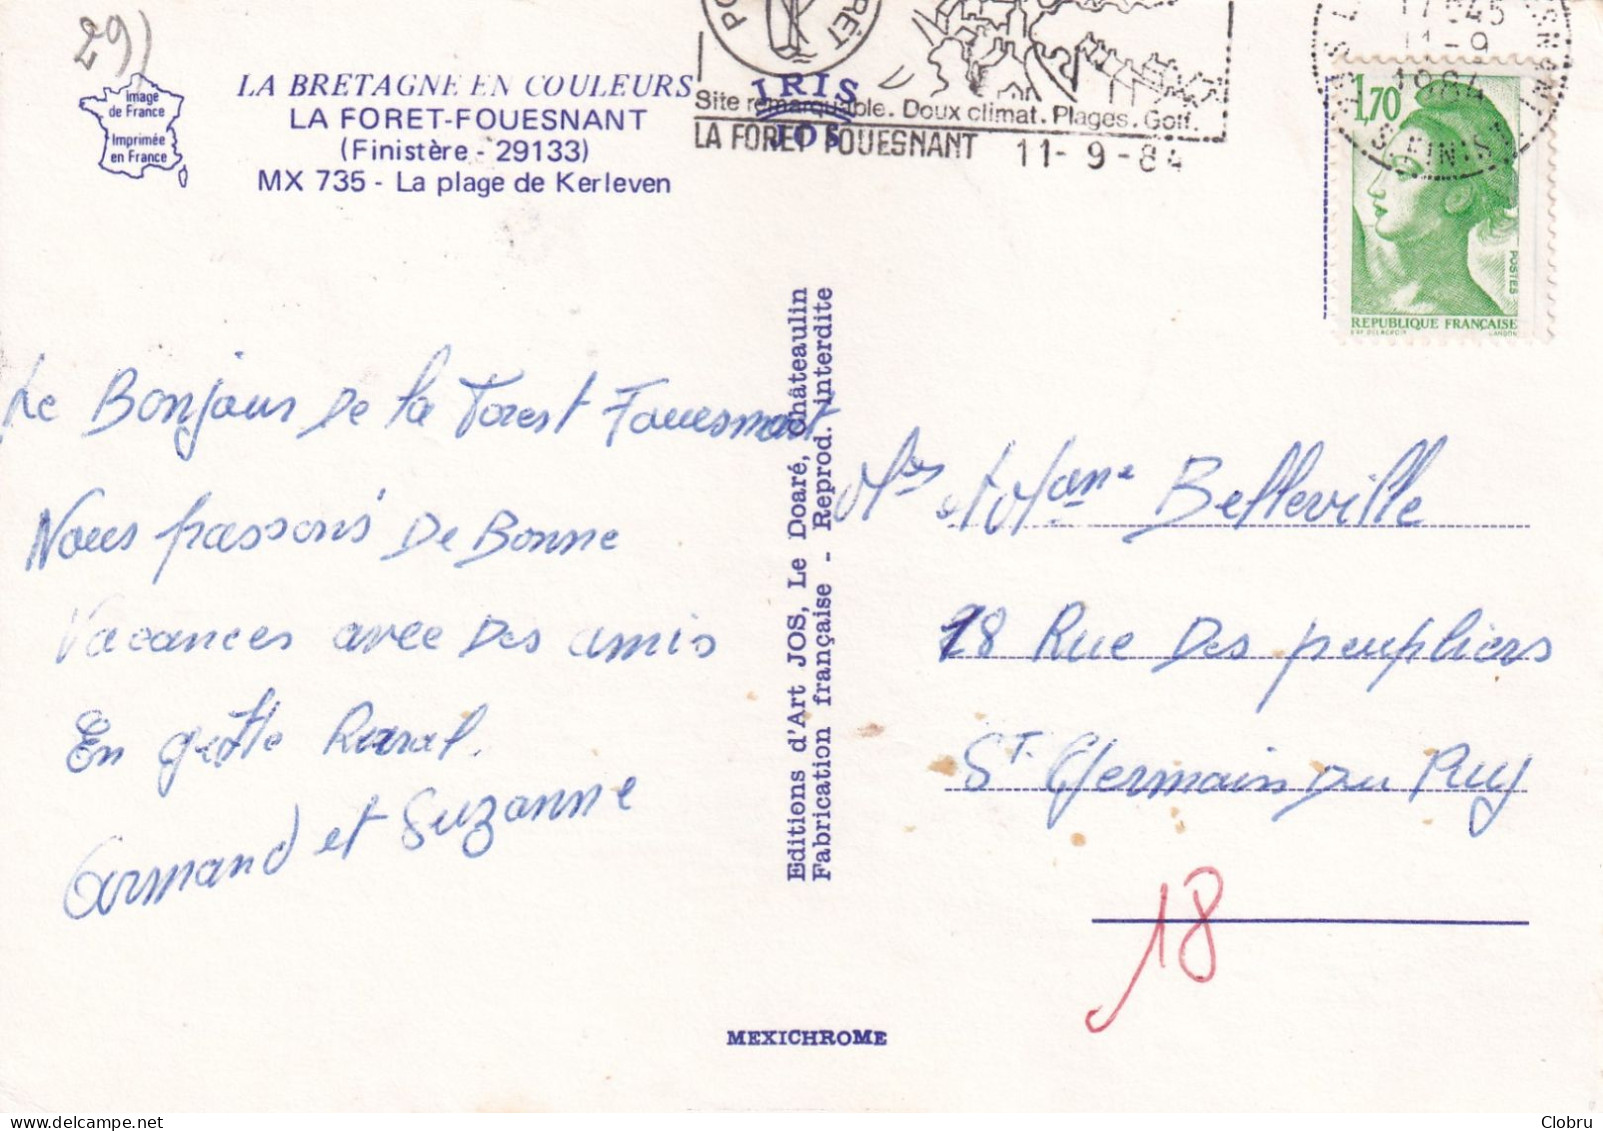 29)
Image
de France
Imprimée
en France
LA BRETAGNE EN COULEURS
LA FORET-FOUESNANT
(Finistère - 29133)
MX 735 - La plage de Kerleven
IRIS
JOS
Site remarquable. Doux climat. Plages. Golf.
LA FORET FOUESNANT 11-9-84
17H45
11-9
1984
FINIST
1,70
POSTES
REPUBLIQUE FRANÇAISE
Le Bonjour De la Forest Fouesmant
Nous passons De Bonne
Vacances avec Des amis
En gette
Armand et Suzanne
Editions d'Art JOS, Le Doaré, Châteaulin
Fabrication française - Reprod. interdite
Belleville
18 Rue Des peupliers
St. Germain Du Puy
18
MEXICHROME
© Clobru